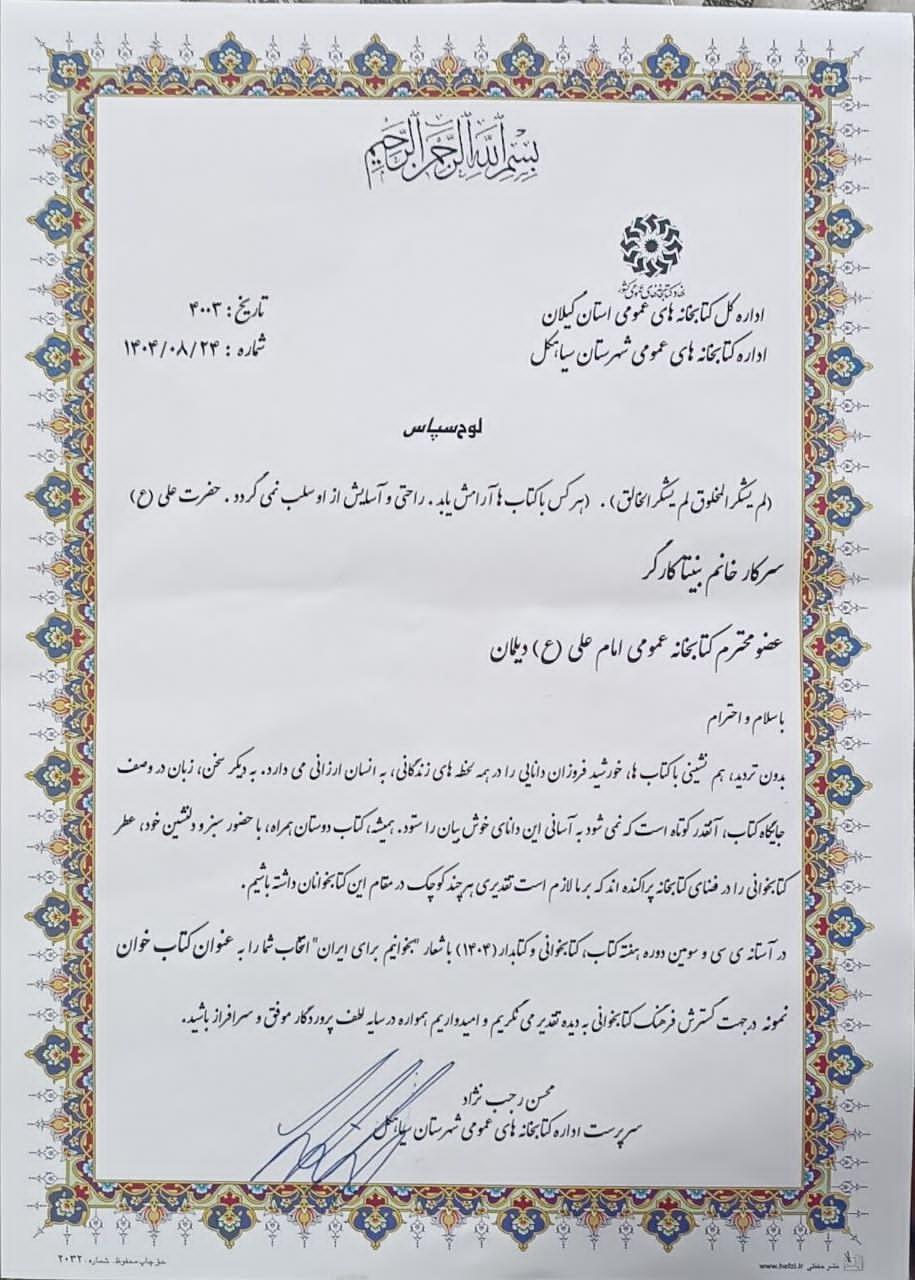 بسم الله الرحمن الرحیم
نهاد کتابخانه‌های عمومی کشور
اداره کل کتابخانه های عمومی استان گیلان
تاریخ : ۴۰۰۳
اداره کتابخانه های عمومی شهرستان سیاهکل
شماره : ۱۴۰۴/۰۸/۲۴
لوح سپاس
(لم یشکر المخلوق لم یشکر الخالق) . (هر کس با کتاب ها آرامش یابد . راحتی و آسایش از او سلب نمی گردد . حضرت علی (ع)
سرکار خانم بنیتا کارگر
عضو محترم کتابخانه عمومی امام علی (ع) دیلمان
با سلام و احترام
بدون تردید، هم نشینی با کتاب ها، خورشید فروزان دانایی را در همه لحظه های زندگانی، به انسان ارزانی می دارد. به دیگر سخن، زبان در وصف
جایگاه کتاب، آنقدر کوتاه است که نمی شود به آسانی این دانای خوش بیان را ستود. همیشه، کتاب دوستان همراه، با حضور سبز و دلنشین خود، عطر
کتابخوانی را در فضای کتابخانه پراکنده اند که بر ما لازم است تقدیری هر چند کوچک در مقام این کتابخوانان داشته باشیم .
در آستانه ی سی و سومین دوره هفته کتاب، کتابخوانی و کتابدار (۱۴۰۴) با شعار "بخوانیم برای ایران" انتخاب شما را به عنوان کتاب خوان
نمونه درجهت گسترش فرهنگ کتابخوانی به دیده تقدیر می نگریم و امیدواریم همواره در سایه لطف پروردگار موفق و سرافراز باشید.
محسن رجب نژاد
سرپرست اداره کتابخانه های عمومی شهرستان سیاهکل
نشر حفظی www.hefzi.ir
حق چاپ محفوظ . شماره : ۲۰۳۲